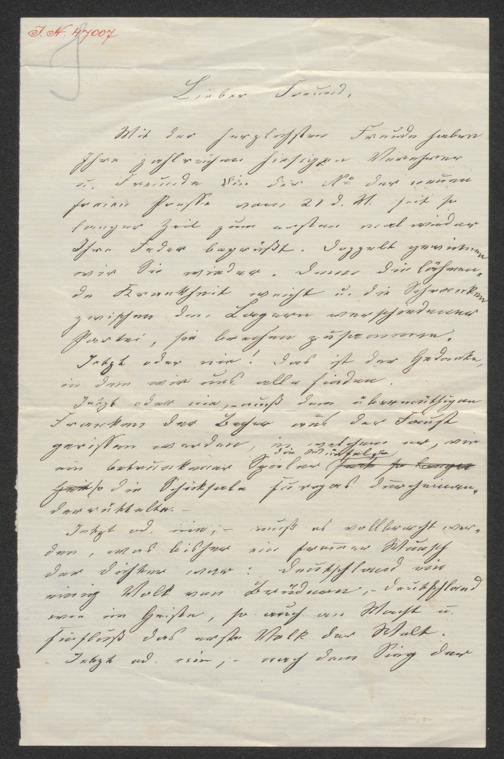 I. N. 47007
Lieber Freund,
Mit der herzlichsten Freude haben
Ihre zahlreichen hiesigen Verehrer
u. Freunde Sie in der No der neuen
freien Presse vom 21 d. M. seit so
langer Zeit zum ersten mal wieder
Ihre Feder begrüßt. Doppelt gewinnen
wir Sie wieder. Denn die lähmen-
de Krankheit weicht u. die Schranken
zwischen den Lagern verschiedener
Partei, sie brechen zusammen.
Jetzt oder nie! das ist der Gedanke,
in dem wir uns alle finden.
Jetzt oder nie, – muß dem übermüthigen
Franken der Becher aus der Faust
gerissen werden, in welchem er, wie
ein betrunkener Spieler die Würfel,
so die Schicksale Europas durcheinan-
derrüttelte. –
Jetzt od. nie, – muß es vollbracht wer-
den, was bisher ein frommer Wunsch
der Dichter war: Deutschland ein
einig Volk von Brüdern, – Deutschland
wie im Geiste, so auch an Macht u.
Einfluß das erste Volk der Welt.
Jetzt od. nie, – nach dem Sieg der